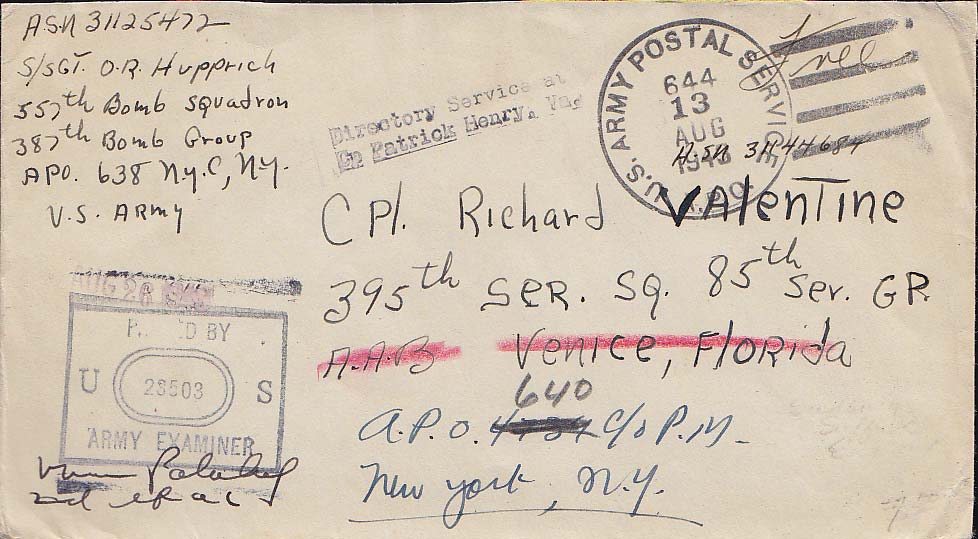 A.S.N 31125472
S/SGT. O.R. Hupprich
557th Bomb Squadron
387th Bomb Group
APO. 638 N.Y.C, N.Y.
U.S. ARMY
Directory Service at
Patrick Henry, Va.
U.S. ARMY POSTAL SERVICE
644
13
AUG
A.P.O.
Free
A.S.N
CPl. Richard VAlenTine
395th SER. SQ. 85th Ser. GR.
A.A.B Venice, Florida
640
A.P.O. c/o P.M.
New York, N.Y.
AUG 26
BY
U 23503 S
ARMY EXAMINER